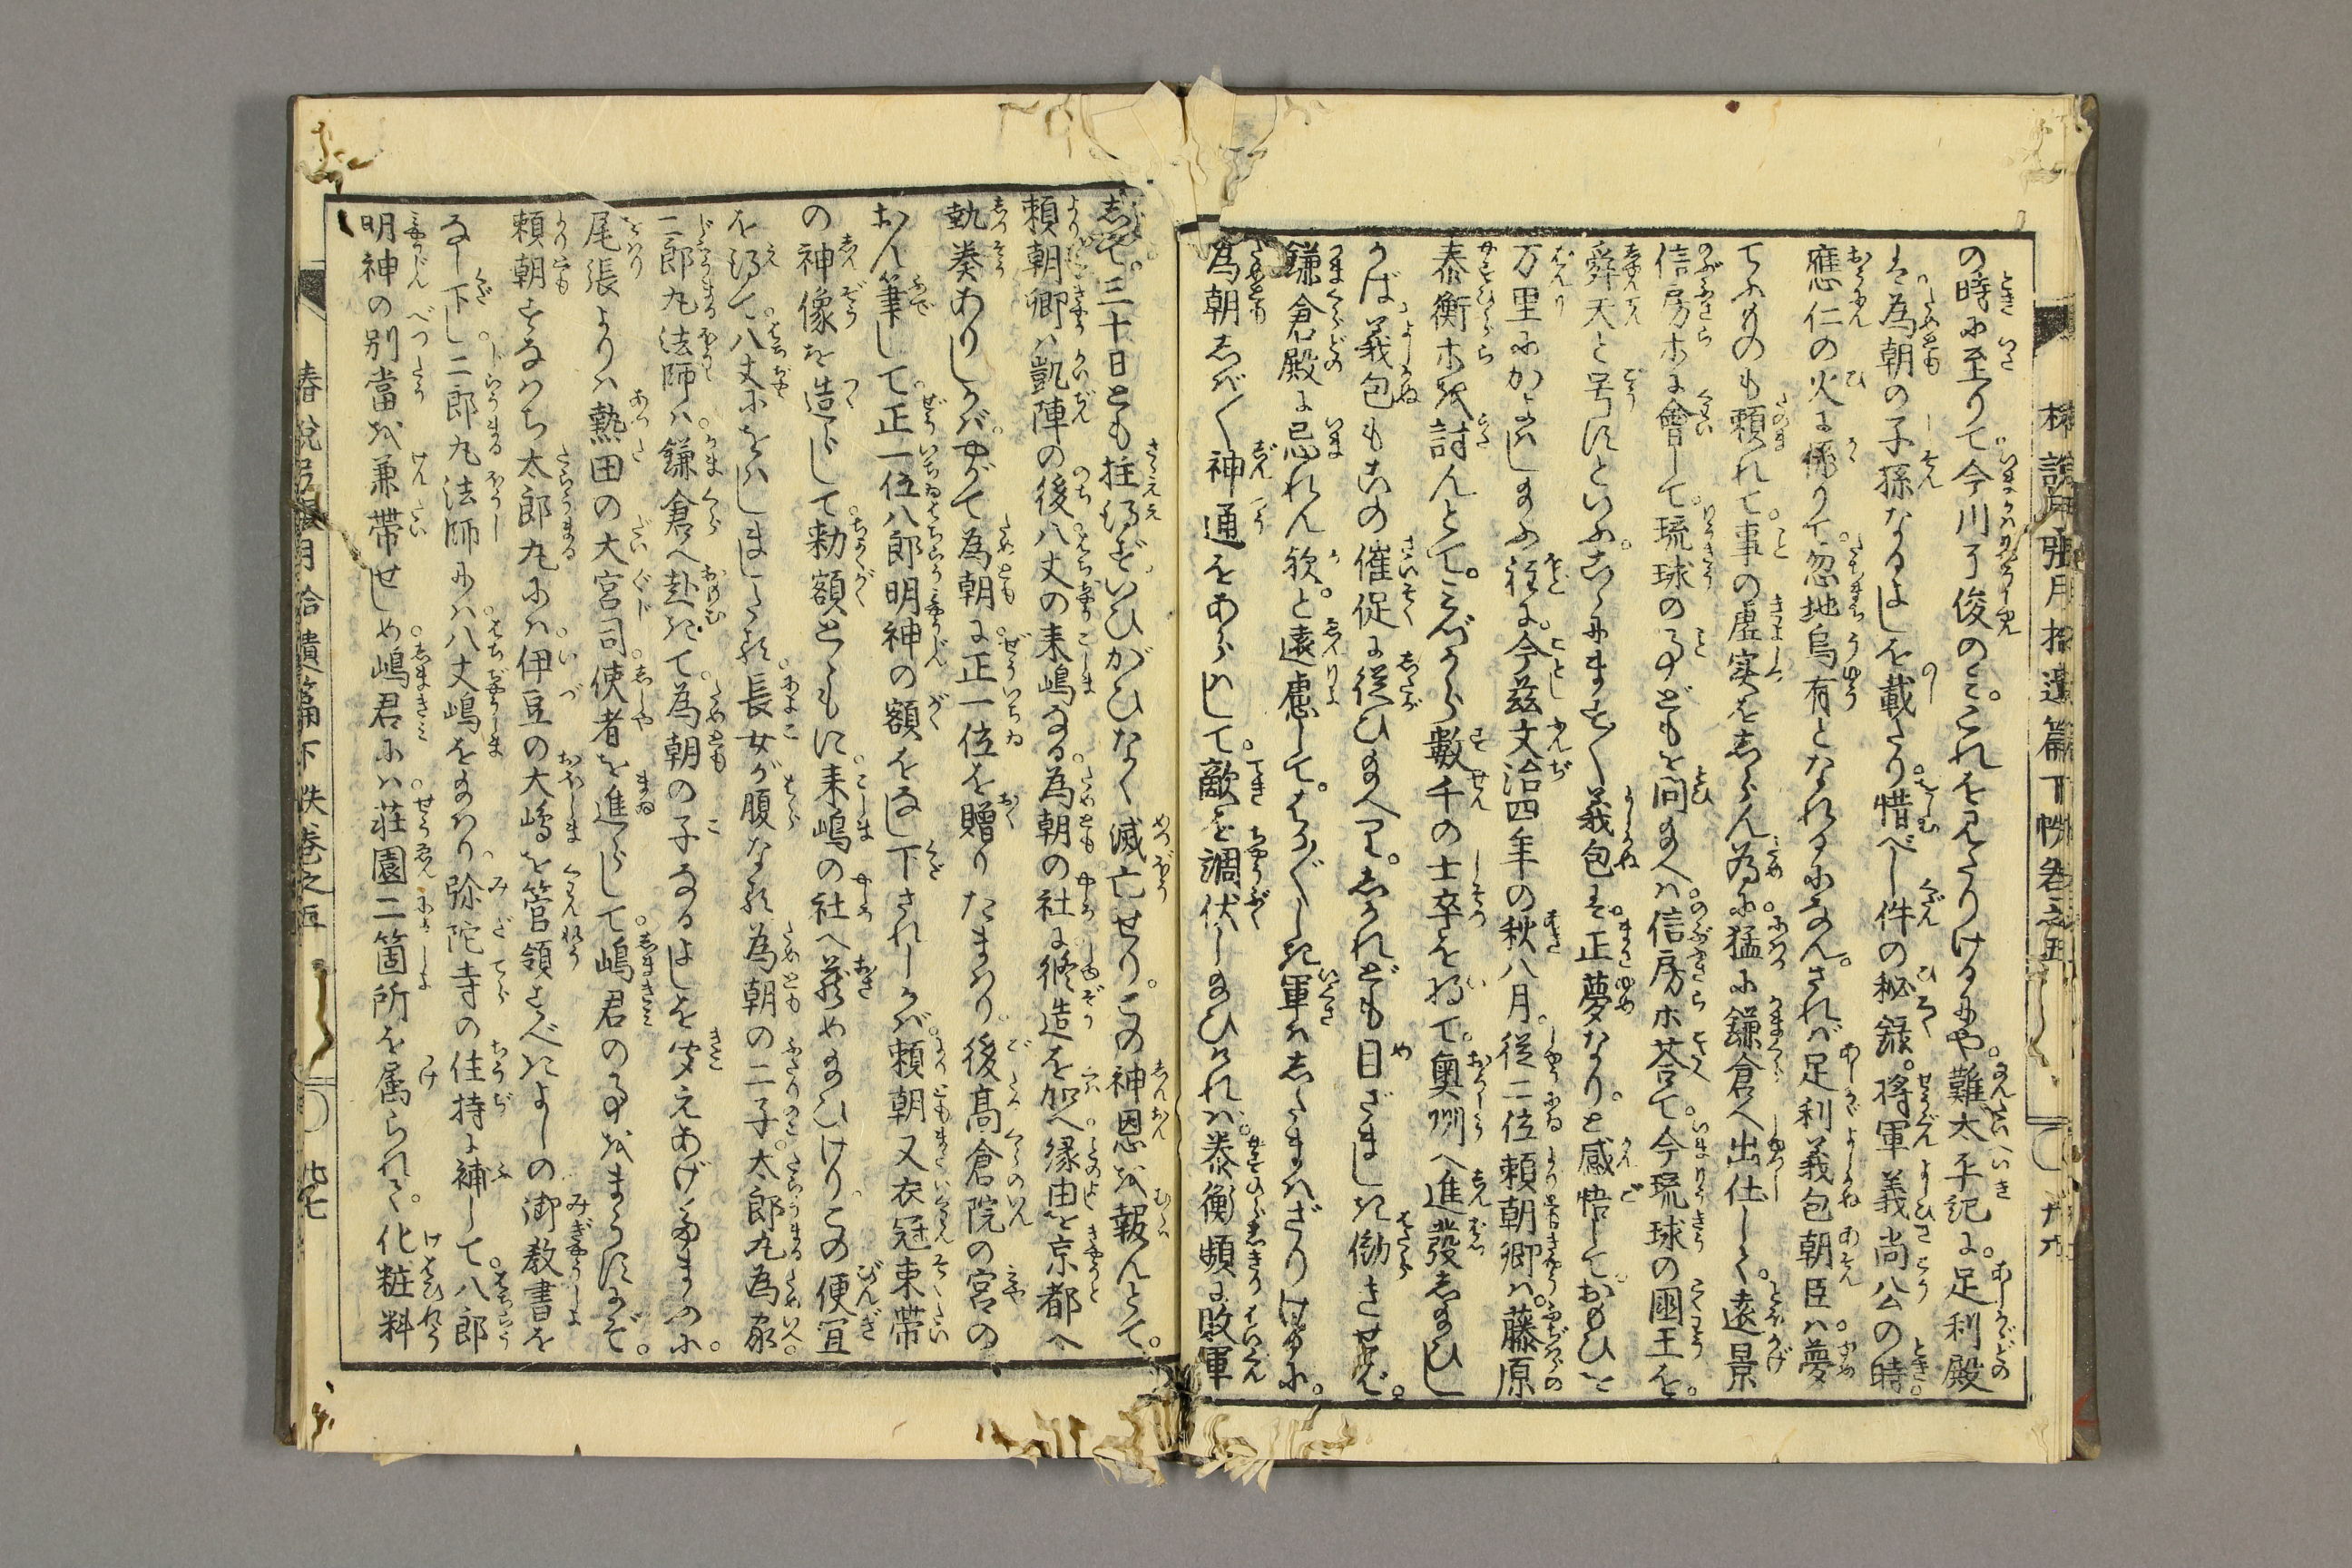 の時に至りて今川了俊のミ。これを見たりけるにや。難太平記に。足利殿
は。為朝の子孫なるよしを載たり。惜べし件の秘録。将軍義尚公の時。
應仁の火に係りて。忽地烏有となれるになん。されば足利義包朝臣ハ。夢
てふものも頼れて。事の虚実をしらん為に。猛に鎌倉へ出仕して。遠景
信房ホに會して。琉球の事どもを問給へハ。信房ホ荅て。今琉球の國王を。
舜天と号すといふ。こゝにます〳〵義包は。正夢なり。と感悟して。おもひを
万里にかよハし給ふ程に。今茲文治四年の秋八月。従二位頼朝卿ハ。藤原
泰衡ホを討んとて。みづから數千の士卒を将て。奥州へ進發し給ひし
かば。義包もその催促に従ひ給へり。しかれども目ざましき働きせば。
鎌倉殿に忌れん歟。と遠慮して。はか〴〵しき軍ハし給ハざりけるに。
為朝しば〳〵神通をあらハして。敵を調伏し給ひけれハ。泰衡頻に敗軍
して。三十日とも拄得ず。いひがひなく滅亡せり。この神恩を報んとて。
頼朝卿ハ凱陣の後。八丈の耒嶋なる。為朝の社に修造を加へ。縁由を京都へ
執奏ありしかバ。やがて為朝に。正一位を贈りたまハり。後髙倉院の宮の
おん筆して。正一位八郎明神の額をなし下されしかバ。頼朝又衣冠束帯
の神像を造らして。勅額とゝもに。耒嶋の社へ蔵め給ひけり。この便宜
を得て。八丈にをハします。長女が腹なる為朝の二子。太郎丸為家。
二郎丸法師ハ。鎌倉へ赴きて。為朝の子なるよしを聞えあげ給ふに。
尾張よりハ熱田の大宮司。使者を進らして。嶋君の事をまうすにぞ。
頼朝すなハち太郎丸にハ。伊豆の大嶋を管領すべきよしの御教書を
なし下し。二郎丸法師にハ。八丈嶋をたまハり。弥陀寺の住持に補して。八郎
明神の別當を兼帯せしめ。嶋君にハ。荘園二箇所を属られて。化粧料
椿説弓張月拾遺篇下帙卷之五
春説弓張月拾遺篇下帙巻之五 廿七